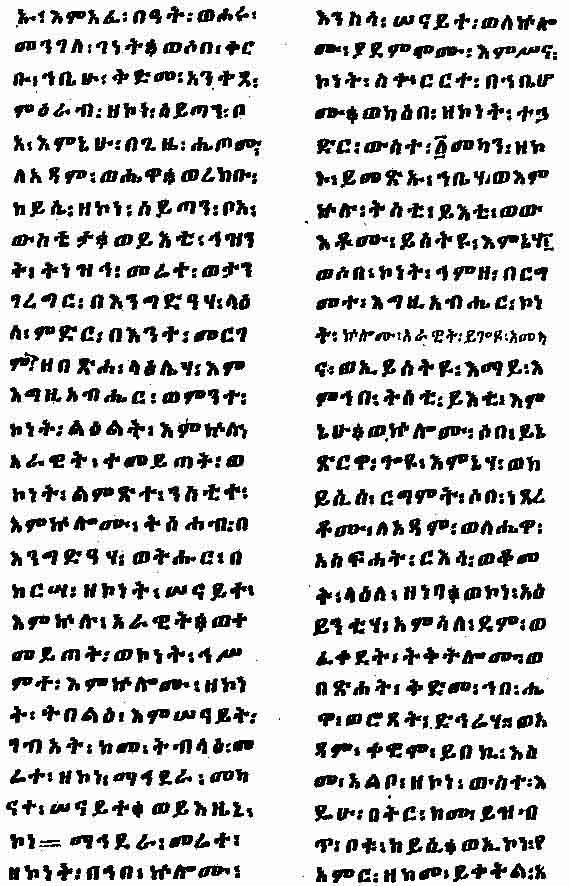 ኡ፤እምአፈ፡በዓት፡ወሖሩ፡
መንገለ፡ገነት፨ወሶበ፡ቀር
ቡ፡ኀቤሁ፡ቅድመ፡አንቀጸ፡
ምዕራብ፡ዘኮነ፡ሰይጣን፡ቦ
አ፡እምኔሁ፡በጊዜ፡ሔጦሙ፡
ለአዳም፡ወሔዋ፨ወረከቡ፡
ከይሲ፡ዘኮነ፡ሰይጣን፡ቦአ፡
ውስቴታ፨ወይእቲ፡ኅዝን
ት፡ትነዝኅ፡መሬተ፡ወታን
ገረግር፡በእንግድዓሃ፡ላዕ
ለ፡ምድር፡በእንተ፡መርገ
ም፡ዘበጽሐ፡ላዕሌሃ፡እም
እግዚአብሔር፡ወምንተ፡
ኮነት፡ልዕልት፡እምኵሉ፡
አራዊት፡ተመይጠት፡ወ
ኮነት፡ልምጽተ፡ንስቲተ፡
እምኵሎሙ፡ትስሐብ፡በ
እንግድዓሃ፡ወትሐር፡በ
ከርሣ፡ዘኮነት፡ሠናይተ፡
እምኵሉ፡አራዊት፨ወተ
መይጠት፡ወኮነት፡ኅሥ
ምተ፡እምኵሎሙ፡ዘኮነ
ት፡ትበልዕ፡እምሠናይት፡
ገብአት፡ከመ፡ትብላዕ፡መ
ሬተ፡ዘኮነ፡ማኅደራ፡መካ
ናተ፡ሠናይተ፨ወይእዜኒ፡
ኮነ፡ማኅደራ፡መሬተ፡
ዘኮነት፡በኀበ፡ኵሎሙ፡
እንስሳ፡ሠናይተ፡ወለኵሎ
ሙ፡ያደምሞሙ፡እምሥና፡
ኮነት፡ስቍርርተ፡በኀቤሆ
ሙ፨ወካዕበ፡ዘኮነት፡ተኃ
ድር፡ውስተ፡፩መካን፡ዘኮ
ኑ፡ይመጽኡ፡ኀቤሃ፡ወእም
ኵሎ፡ትሰቲ፡ይእቲ፡ወው
እቶሙ፡ይሰትዩ፡እምኔሃ፤
ወሶበ፡ኮነት፡ኅምዘ፡በርግ
መተ፡እግዚአብሔር፡ኮነ
ት፡ኵሎሙ፡አራዊት፡ይጐዩ፡እመካ
ና፡ወኢይሰትዩ፡እማይ፡እ
ምኀበ፡ትሰቲ፡ይእቲ፡እም
ኔሁ፨ወኵሎሙ፡ሶበ፡ይኔ
ጽርዋ፡ጐዩ፡እምኔሃ፡ወከ
ይሲሰ፡ርግምት፡ሶበ፡ነጸረ
ቶሙ፡ለአዳም፡ወለሔዋ፡
አስፍሐት፡ርእሳ፡ወቆመ
ት፡ላዕለ፡ዘነባ፨ወኮነ፡አዕ
ይንቲሃ፡አምሳለ፡ደም፡ወ
ፈቀደት፡ትቅትሎሙ፡ወ
በጽሐት፡ቅድመ፡ኀበ፡ሔ
ዋ፡ወሮጸት፡ድኅሬሃ፡ወአ
ዳም፡ቀዊሞ፡ይበኪ፡እስ
መ፡አልቦ፡ዘኮነ፡ውስተ፡እ
ዴሁ፡በትር፡ከመ፡ይዝብ
ጥ፡ቦቱ፡ከይሴ፨ወኢኮነ፡የ
አምር፡ዘከመ፡ይቀትል፡አ